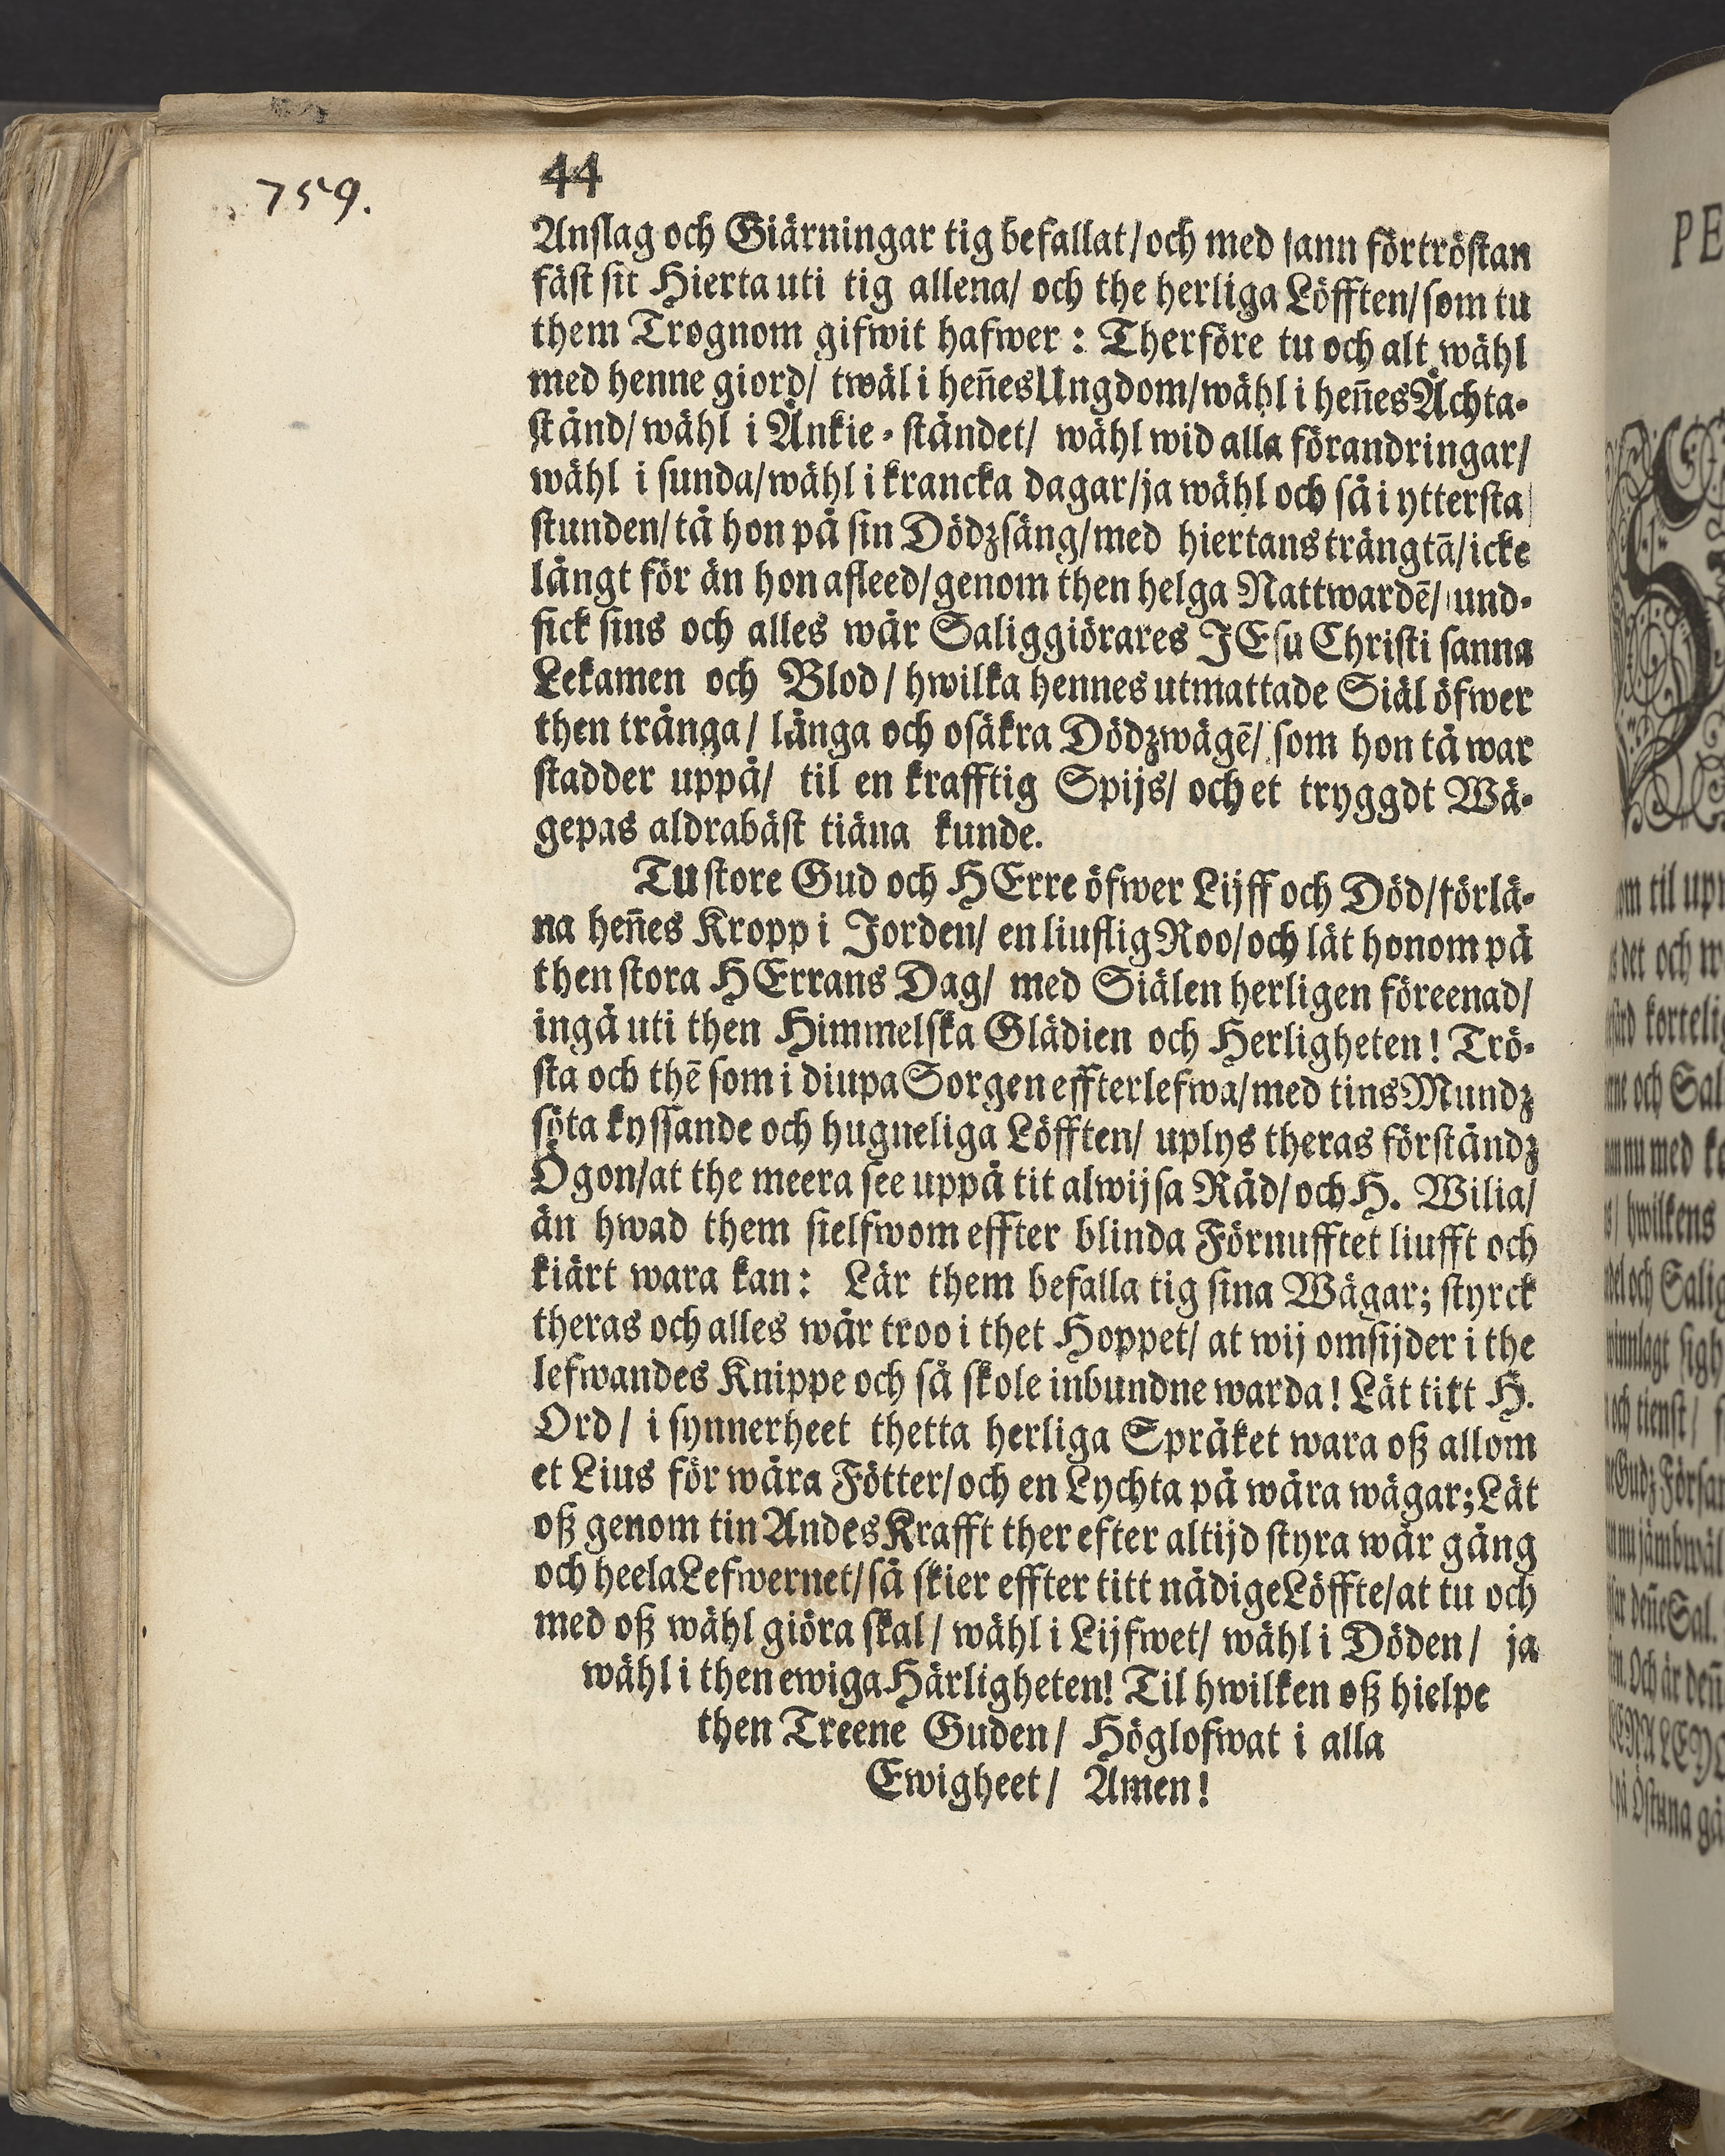 759.
44
Anslag och Giärningar tig befallat/och med sann förtröstan
fäst sit Hierta uti tig allena/ och the herliga Löfften/som tu
them Trognom gifwit hafwer: Therföre tu och alt wähl
med henne giord/ twäl i hen̄es Ungdom/wähl i hen̄es Ächta-
stånd/wähl i Änkie-ståndet/ wähl wid alla förandringar/
wähl i sunda/wähl i krancka dagar/ja wähl och så i yttersta
stunden/tå hon på sin Dödzsäng/med hiertans trängtā/icke
långt för än hon afleed/genom then helga Nattwardē/und-
fick sins och alles wår Saliggiörares JEsu Christi sanna
Lekamen och Blod/hwilka hennes utmattade Siäl öfwer
then trånga/ långa och osäkra Dödzwägē/som hon tå war
stadder uppå/ til en krafftig Spijs/och et tryggdt Wä-
gepas aldrabäst tiäna kunde.
Tu store Gud och HErre öfwer Lijff och Död/förlä-
na hen̄es Kropp i Jorden/ en liuflig Roo/och lät honom på
then stora HErrans Dag/ med Siälen herligen föreenad/
ingå uti then Himmelska Glädien och Herligheten! Trö-
sta och thē som i diupa Sorgen effterlefwa/med tins Mundz
söta kyssande och hugneliga Löfften/ uplys theras förståndz
Ögon/at the meera see uppå tit alwijsa Råd/och H. Wilia/
än hwad them sielfwom effter blinda Förnufftet liufft och
kiärt wara kan: Lär them befalla tig sina Wägar; styrck
theras och alles wår troo i thet Hoppet/ at wij omsijder i the
lefwandes Knippe och så skole inbundne warda! Lät titt H.
Ord/ i synnerheet thetta herliga Språket wara oß allom
et Lius för wåra Fötter/och en Lychta på wåra wägar; Lät
oß genom tin Andes Krafft ther efter altijd styra wår gång
och heela Lefwernet/så skier effter titt nådige Löffte/at tu och
med oß wähl giöra skal/ wähl i Lijfwet/ wähl i Döden/ ja
wähl i then ewiga Härligheten! Til hwilken oß hielpe
then Treene Guden/ Höglofwat i alla
Ewigheet/ Amen!